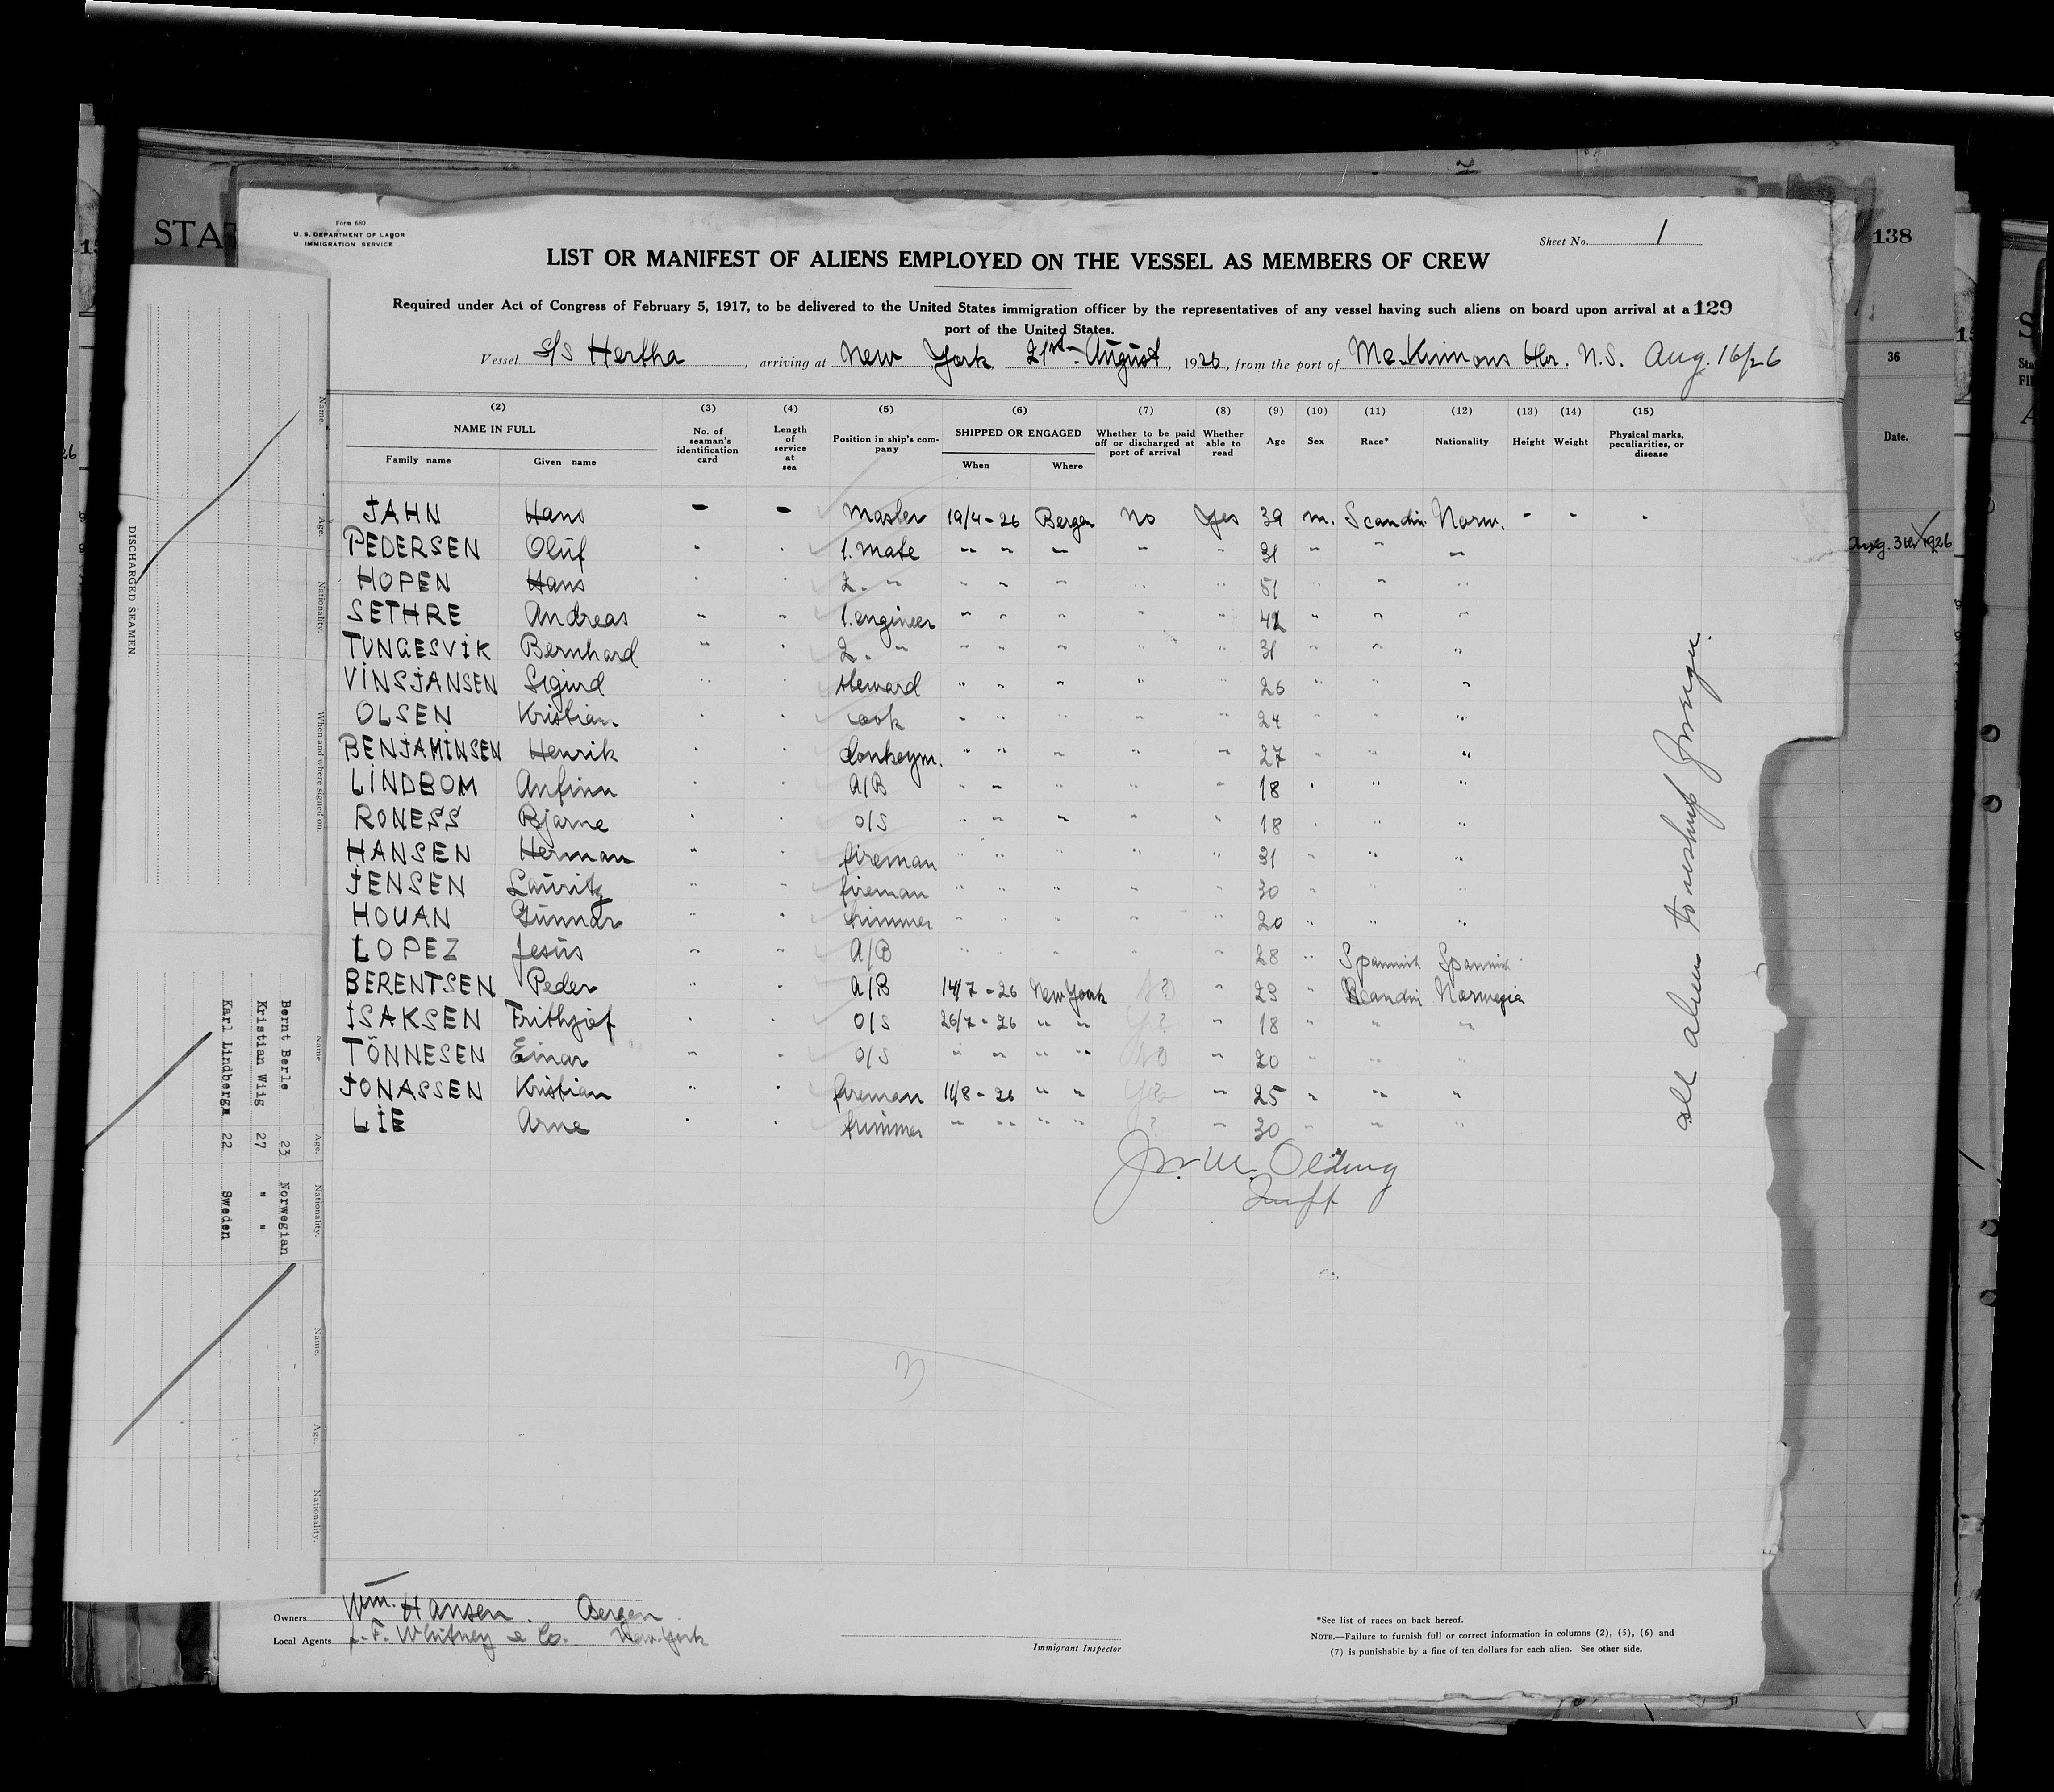 Form 680
U. S. DEPARTMENT OF LABOR
IMMIGRATION SERVICE
Sheet No. 1
LIST OR MANIFEST OF ALIENS EMPLOYED ON THE VESSEL AS MEMBERS OF CREW
Required under Act of Congress of February 5, 1917, to be delivered to the United States immigration officer by the representatives of any vessel having such aliens on board upon arrival at a 129
port of the United States.
Vessel S/S Hertha, arriving at New York 21st August, 1926, from the port of McKinnons Hbr. N.S. Aug. 16/26
(2) (3) (4) (5) (6) (7) (8) (9) (10) (11) (12) (13) (14) (15)
NAME IN FULL
Family name Given name
No. of seaman's identification card
Length of service at sea
Position in ship's company
SHIPPED OR ENGAGED
When Where
Whether to be paid off or discharged at port of arrival
Whether able to read
Age Sex Race* Nationality Height Weight
Physical marks, peculiarities, or disease
JAHN Hans - - Master 19/4-26 Bergen No Yes 39 m. Scandin. Norw. - - -
PEDERSEN Oluf " " 1. mate " " " " " 31 " " "
HOPEN Hans " " 2. " " " " " " 51 " " "
SETHRE Andreas " " 1. engineer " " " " " 42 " " "
TUNGESVIK Bernhard " " 2. " " " " " " 31 " " "
VINSJANSEN Sigurd " " Steward " " " " " 26 " " "
OLSEN Kristian " " cook " " " " " 24 " " "
BENJAMINSEN Henrik " " donkeym. " " " " " 27 " " "
LINDBOM Anfinn " " A/B " " " " " 18 " " "
RONESS Bjarne " " O/S " " " " " 18 " " "
HANSEN Herman " " fireman " " " " " 31 " " "
JENSEN Lauritz " " fireman " " " " " 30 " " "
HOUAN Gunnar " " trimmer " " " " " 20 " " "
LOPEZ Jesus " " A/B " " " " 28 " Spannish Spannish
BERENTSEN Peder " " A/B 14/7-26 New York No " 23 " Scandin Norwegia
ISAKSEN Frithjof " " O/S 26/7-26 " " " 18 " " "
TÖNNESEN Einar " " O/S " " " " No " 20 " " "
JONASSEN Kristian " " fireman 11/8-26 " " Yes " 25 " " "
LIE Arne " " trimmer " " " " " 30 " " "
all aliens to reship foreign.
3
Owners Wm. Hansen. Bergen
Local Agents J. F. Whitney & Co. New York
Immigrant Inspector
*See list of races on back hereof.
NOTE.—Failure to furnish full or correct information in columns (2), (5), (6) and
(7) is punishable by a fine of ten dollars for each alien. See other side.
DISCHARGED SEAMEN.
Name. Age. Nationality. When and where signed on.
Name. Age. Nationality.
Bernt Berle 23 Norwegian
Kristian Wiig 27 " "
Karl Lindberg 22 Sweden
Name. Age. Nationality.
STAT
138
36
Date.
Aug. 3th 1926